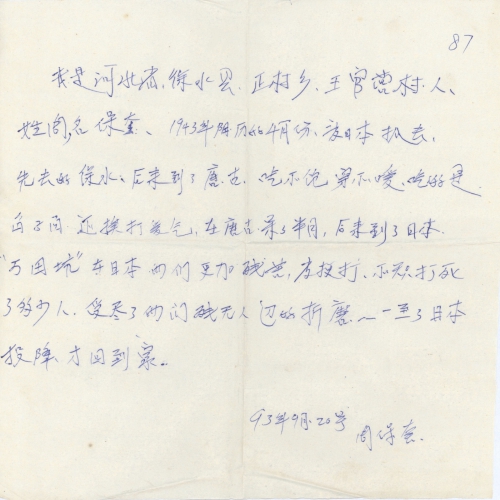 87
我是河北省，徐水县，正村乡，王官营村，人，
姓周，名保奎、1943年阴历的4月份，被日本抓去，
先去的保水，后来到了唐古，吃不饱 穿不暖，吃的是
豆了面 还挨打受气，在唐古呆了半月，后来到了日本
"万田坑"在日本他们更加残苦，常挨打、不知打死
了多少人，受尽了他们残无人边的折磨，一至了日本
投降才回到家。
93年9月20号
周保奎